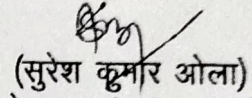 (सुरेश कुमार ओला)